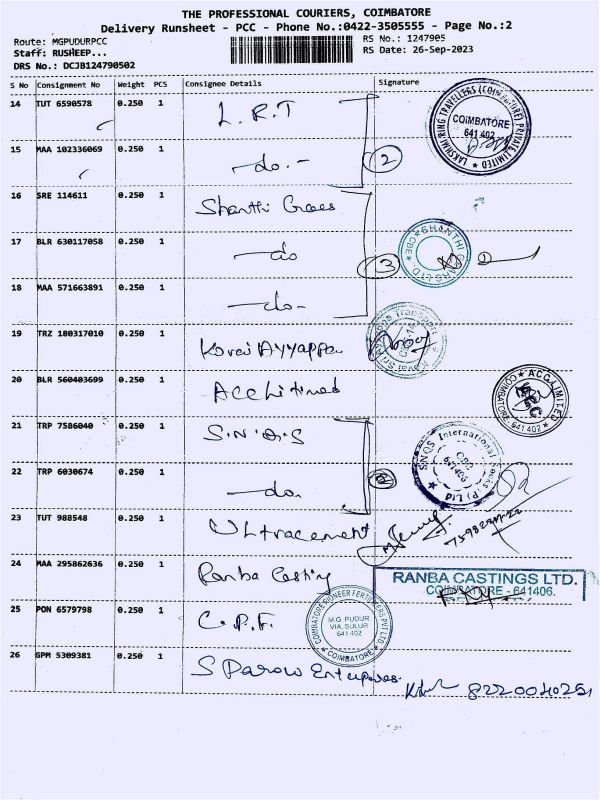 THE PROFESSIONAL COURIERS, COIMBATORE
Delivery Runsheet - PCC - Phone No.:0422-3505555 - Page No.:2
Route: MGPUDURPCC
RS No.: 1247905
Staff: RUSHEEP...
RS Date: 26-Sep-2023
DRS No.: DCJB124790502
S No Consignment No Weight PCS Consignee Details Signature
14 TUT 6590578 0.250 1 L.R.T
LAKSHMI RING TRAVELLERS (COIMBATORE) PRIVATE LIMITED
COIMBATORE 641 402
15 MAA 102336069 0.250 1 -do.- 2
16 SRE 114611 0.250 1 Shanthi Gears
17 BLR 630117058 0.250 1 -do 3 SHANTHI GEARS LTD. CBE
18 MAA 571663891 0.250 1 -do-
19 TRZ 180317010 0.250 1 Kovai Ayyappa
20 BLR 560403699 0.250 1 ACC Limited ACC LIMITED COIMBATORE 641 402
21 TRP 7586040 0.250 1 S.N.Q.S SNQS International Socks (P) Ltd
22 TRP 6030674 0.250 1 -do.
23 TUT 988548 0.250 1 Ultracement
24 MAA 295862636 0.250 1 Ranba Casting RANBA CASTINGS LTD.
COIMBATORE - 641406.
25 PON 6579798 0.250 1 C.P.F. COIMBATORE PIONEER FERTILIZERS PVT LTD
M.G. PUDUR
VIA. SULUR
641 402
COIMBATORE
26 GPM 5309381 0.250 1 S Parow Enterprises.